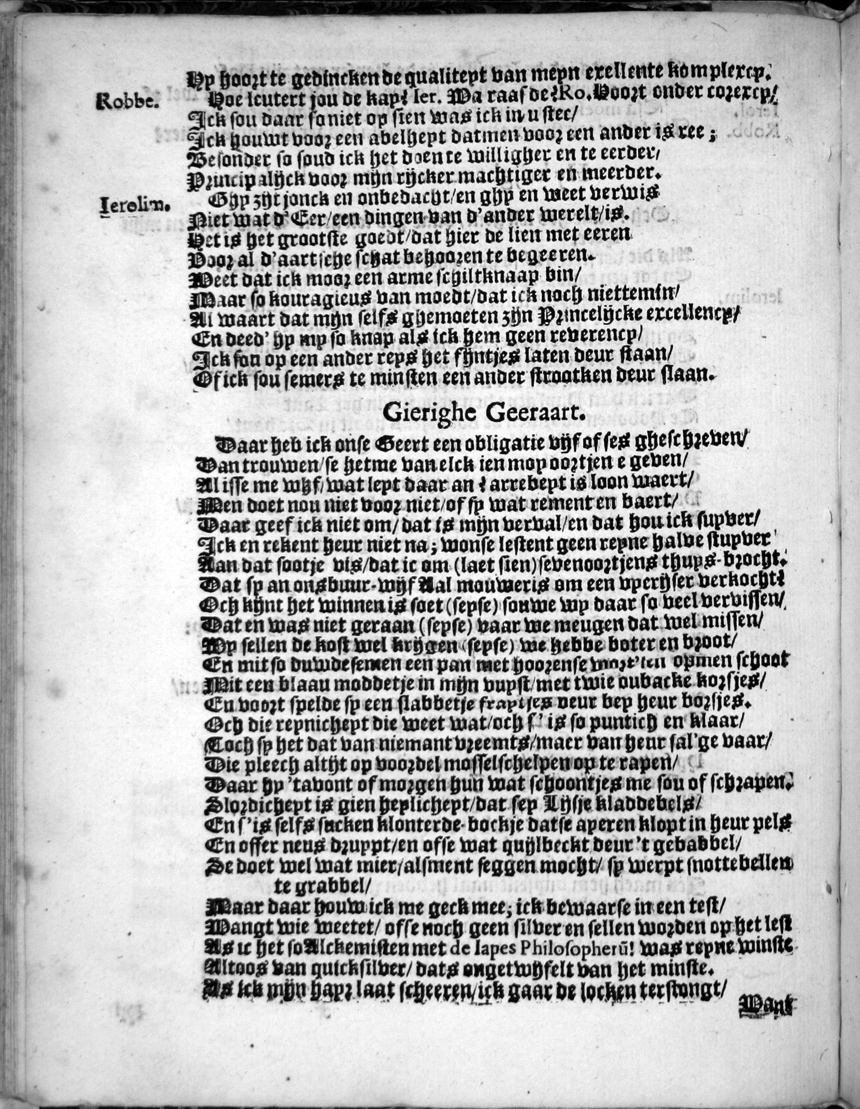 Hy hoort te gedincken de qualiteyt van meyn exellente komplexcy.
Robbe. Hoe leutert jou de kap? Ier. Wa raas de? Ro. Hoort onder corexcy/
Ick sou daar so niet op sien was ick in u stee/
Ick houwt voor een abelheyt datmen voor een ander is ree;
Besonder so soud ick het doen te willigher en te eerder/
Principalijck voor mijn rijcker machtiger en meerder.
Ierolim. Ghy zijt jonck en onbedacht/en ghy en weet verwis
Niet wat d'Eer/een dingen van d'ander werelt/is.
Het is het grootste goedt/dat hier de lien met eeren
Voor al d'aartsche schat behooren te begeeren.
Weet dat ick moor een arme schiltknaap bin/
Maar so kouragieus van moedt/dat ick noch niettemin/
Al waart dat mijn selfs ghemoeten zijn Princelijcke excellency/
En deed' hy my so knap als ick hem geen reverency/
Ick sou op een ander reys het fijntjes laten deur staan/
Of ick sou semers te minsten een ander strootken deur slaan.
Gierighe Geeraart.
Daar heb ick onse Geert een obligatie vijf of ses gheschreven/
Van trouwen/se hetme van elck ien moy oortjen e geven/
Al isse me wijf/wat leyt daar an? arrebeyt is loon waert/
Men doet nou niet voor niet/of sy wat rement en baert/
Daar geef ick niet om/dat is mijn verval/en dat hou ick suyver/
Ick en rekent heur niet na; wonse lestent geen reyne halve stuyver
Aan dat sootje vis/dat ic om (laet sien) sevenoortjens thuys-brocht.
Dat sy an ons buur-wijf Aal mouweris om een vyerijser verkocht?
Och kijnt het winnen is soet (seyse) souwe wy daar so veel vervissen/
Dat en was niet geraan (seyse) vaar we meugen dat wel missen/
Wy sellen de kost wel krijgen (seyse) we hebbe boter en broot/
En mit so duwdesemen een pan met hoorense opmen schoot
Mit een blaau moddetje in mijn vuyst/met twie oubacke korsjes/
En voort spelde sy een slabbetje fraytjes veur bey heur borsjes.
Och die reynicheyt die weet wat/och s' is so puntich en klaar/
Toch sy het dat van niemant vreemts/maer van heur sal'ge vaar/
Die pleech altijt op voordel mosselschelpen op te rapen/
Daar hy 'tavont of morgen hun wat schoontjes me sou of schrapen.
Slordicheyt is gien heylicheyt/dat sey Lijsje kladdebels/
En s'is selfs sucken klonterde-bockje datse aperen klopt in heur pels
En offer neus druypt/en ofse wat quijlbeckt deur 't gebabbel/
Se doet wel wat mier/alsment seggen mocht/ sy werpt snottebellen
te grabbel/
Maar daar houw ick me geck mee; ick bewaarse in een test/
Wangt wie weetet/ ofse noch geen silver en sellen worden op het lest
As ic het so Alckemisten met de Iapes Philosopherũ! was reyne winste
Altoos van quicksilver/ dats ongetwijfelt van het minste.
As ick mijn hayr laat scheeren/ick gaar de locken terstongt/
Wank